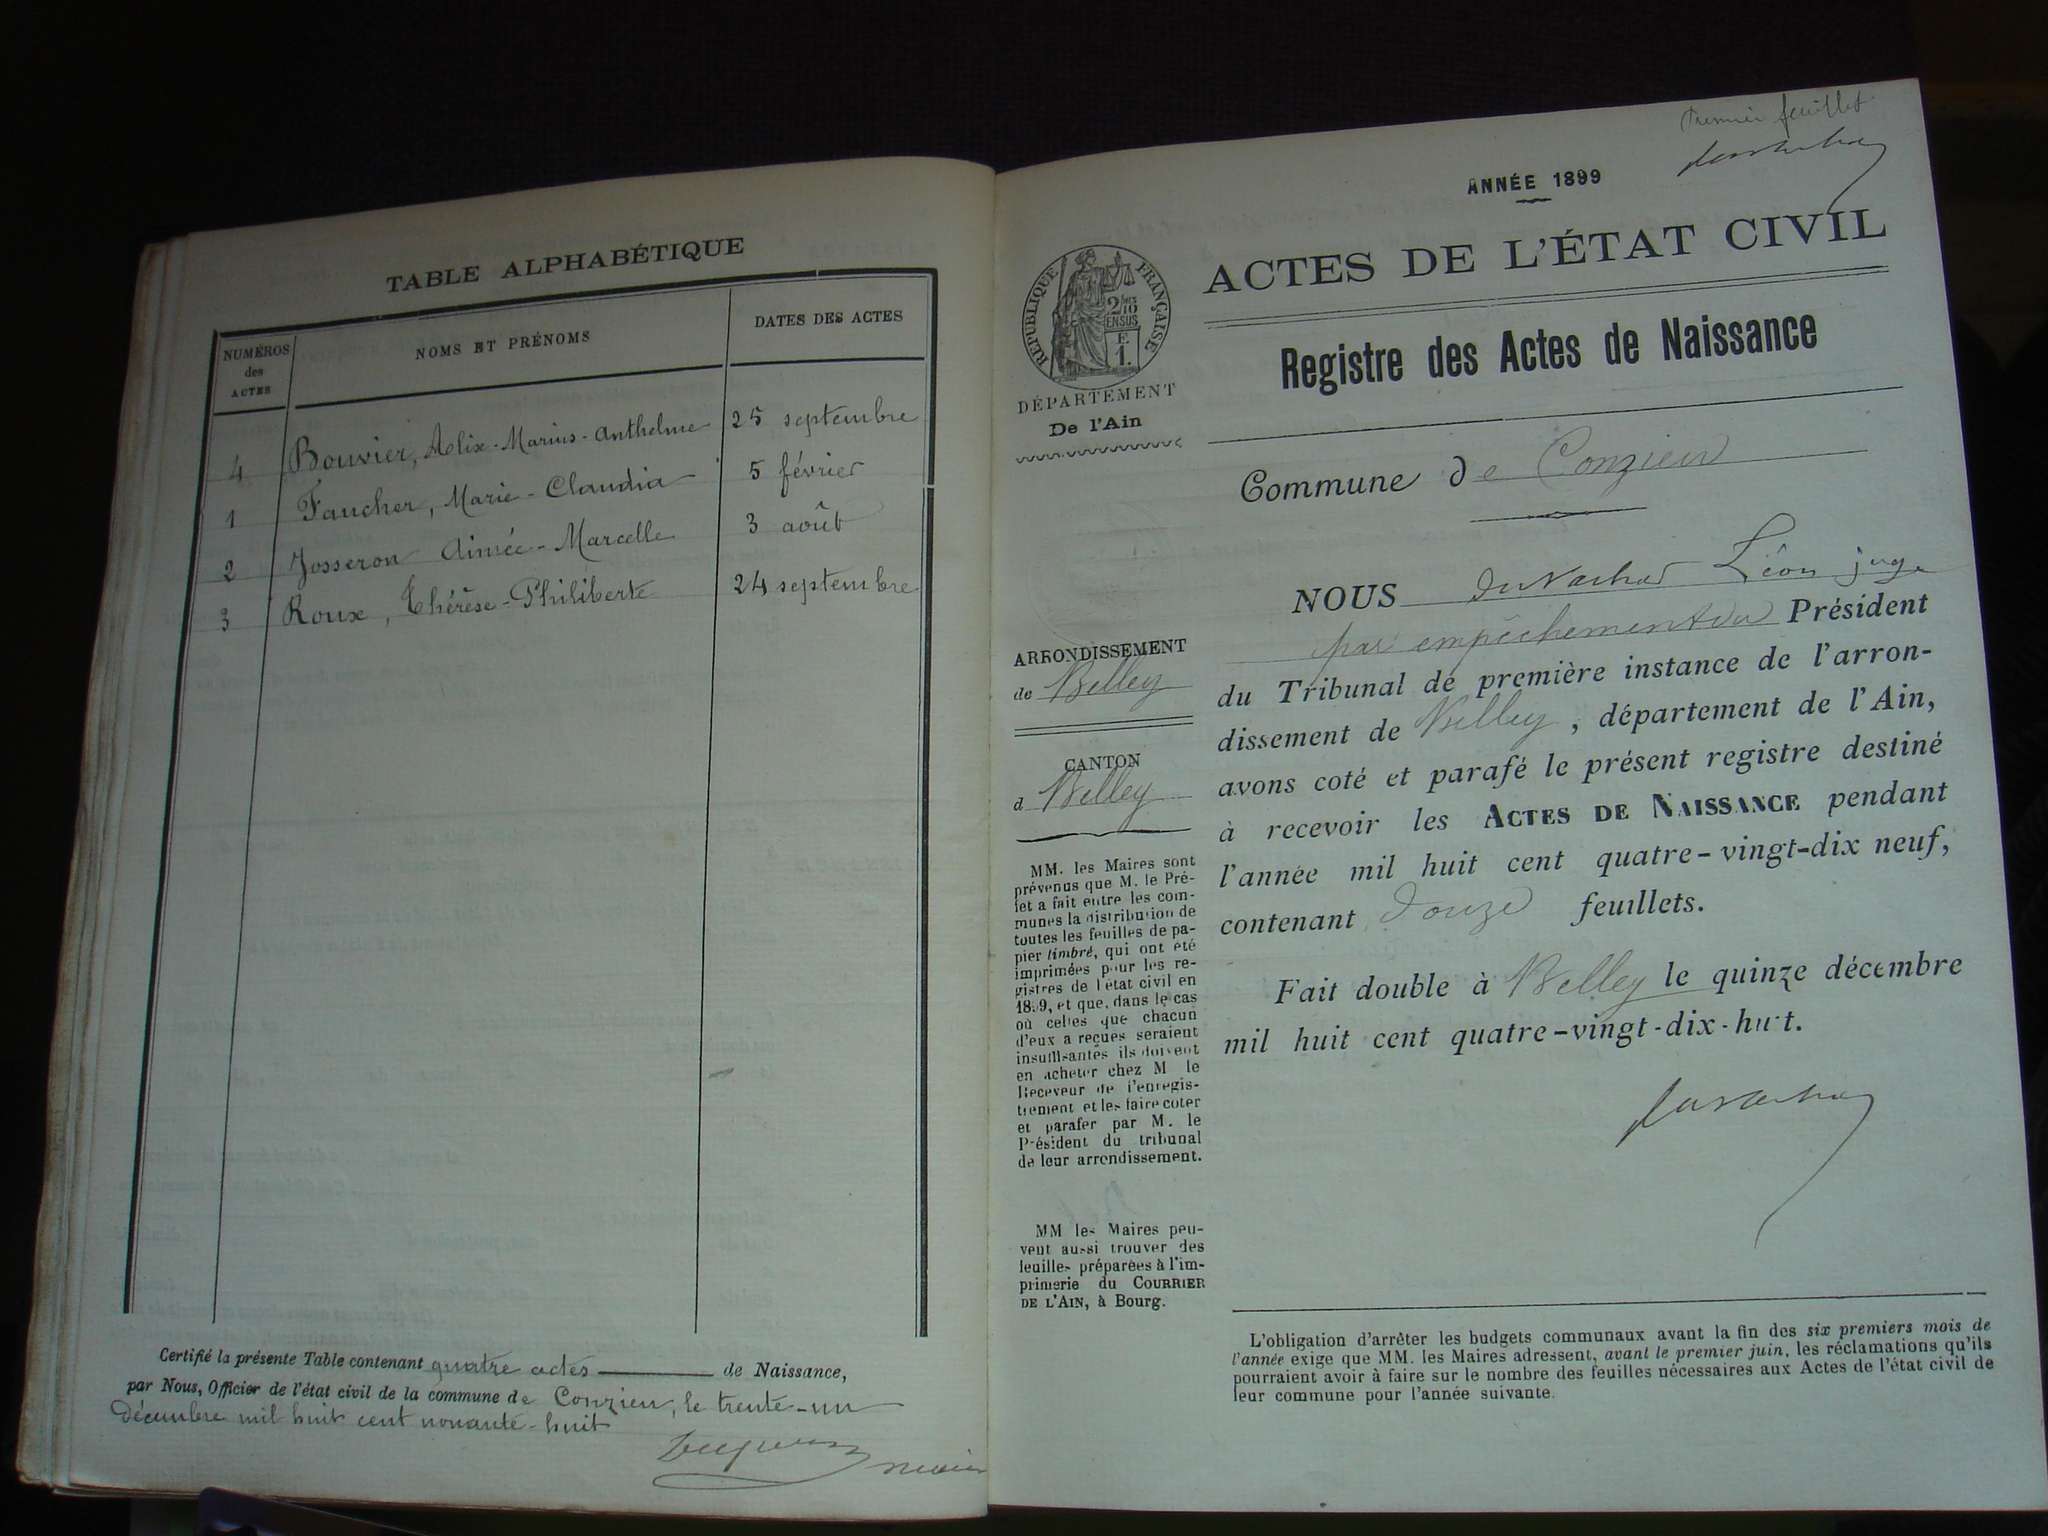 TABLE ALPHABÉTIQUE
NUMÉROS des ACTES
NOMS ET PRÉNOMS
DATES DES ACTES
4 Bouvier, Alix-Marius-Anthelme 25 septembre
1 Faucher, Marie-Claudia 5 février
2 Josseron Aimée-Marcelle 3 août
3 Roux, Thérèse-Philiberte 24 septembre
Certifié la présente Table contenant quatre actes de Naissance,
par Nous, Officier de l'état civil de la commune de Conzieu, le trente-un
décembre mil huit cent nonante-huit
maire
Premier feuillet
ANNÉE 1899
ACTES DE L'ÉTAT CIVIL
Registre des Actes de Naissance
RÉPUBLIQUE FRANÇAISE
2/10 EN SUS
E
1.
DÉPARTEMENT
De l'Ain
Commune de Conzieu
NOUS Léon juge
par empêchement du Président
du Tribunal de première instance de l'arron-
dissement de Belley, département de l'Ain,
avons coté et parafé le présent registre destiné
à recevoir les ACTES DE NAISSANCE pendant
l'année mil huit cent quatre-vingt-dix neuf,
contenant douze feuillets.
Fait double à Belley le quinze décembre
mil huit cent quatre-vingt-dix-huit.
ARRONDISSEMENT
de Belley
CANTON
d Belley
MM. les Maires sont
prévenus que M. le Pré-
fet a fait entre les com-
munes la distribution de
toutes les feuilles de pa-
pier timbré, qui ont été
imprimées pour les re-
gistres de l'état civil en
1899, et que, dans le cas
où celles que chacun
d'eux a reçues seraient
insuffisantes ils doivent
en acheter chez M le
Receveur de l'enregis-
trement et les faire coter
et parafer par M. le
Président du tribunal
de leur arrondissement.
MM les Maires peu-
vent aussi trouver des
feuilles préparées à l'im-
primerie du COURRIER
DE L'AIN, à Bourg.
L'obligation d'arrêter les budgets communaux avant la fin des six premiers mois de
l'année exige que MM. les Maires adressent, avant le premier juin, les réclamations qu'ils
pourraient avoir à faire sur le nombre des feuilles nécessaires aux Actes de l'état civil de
leur commune pour l'année suivante.